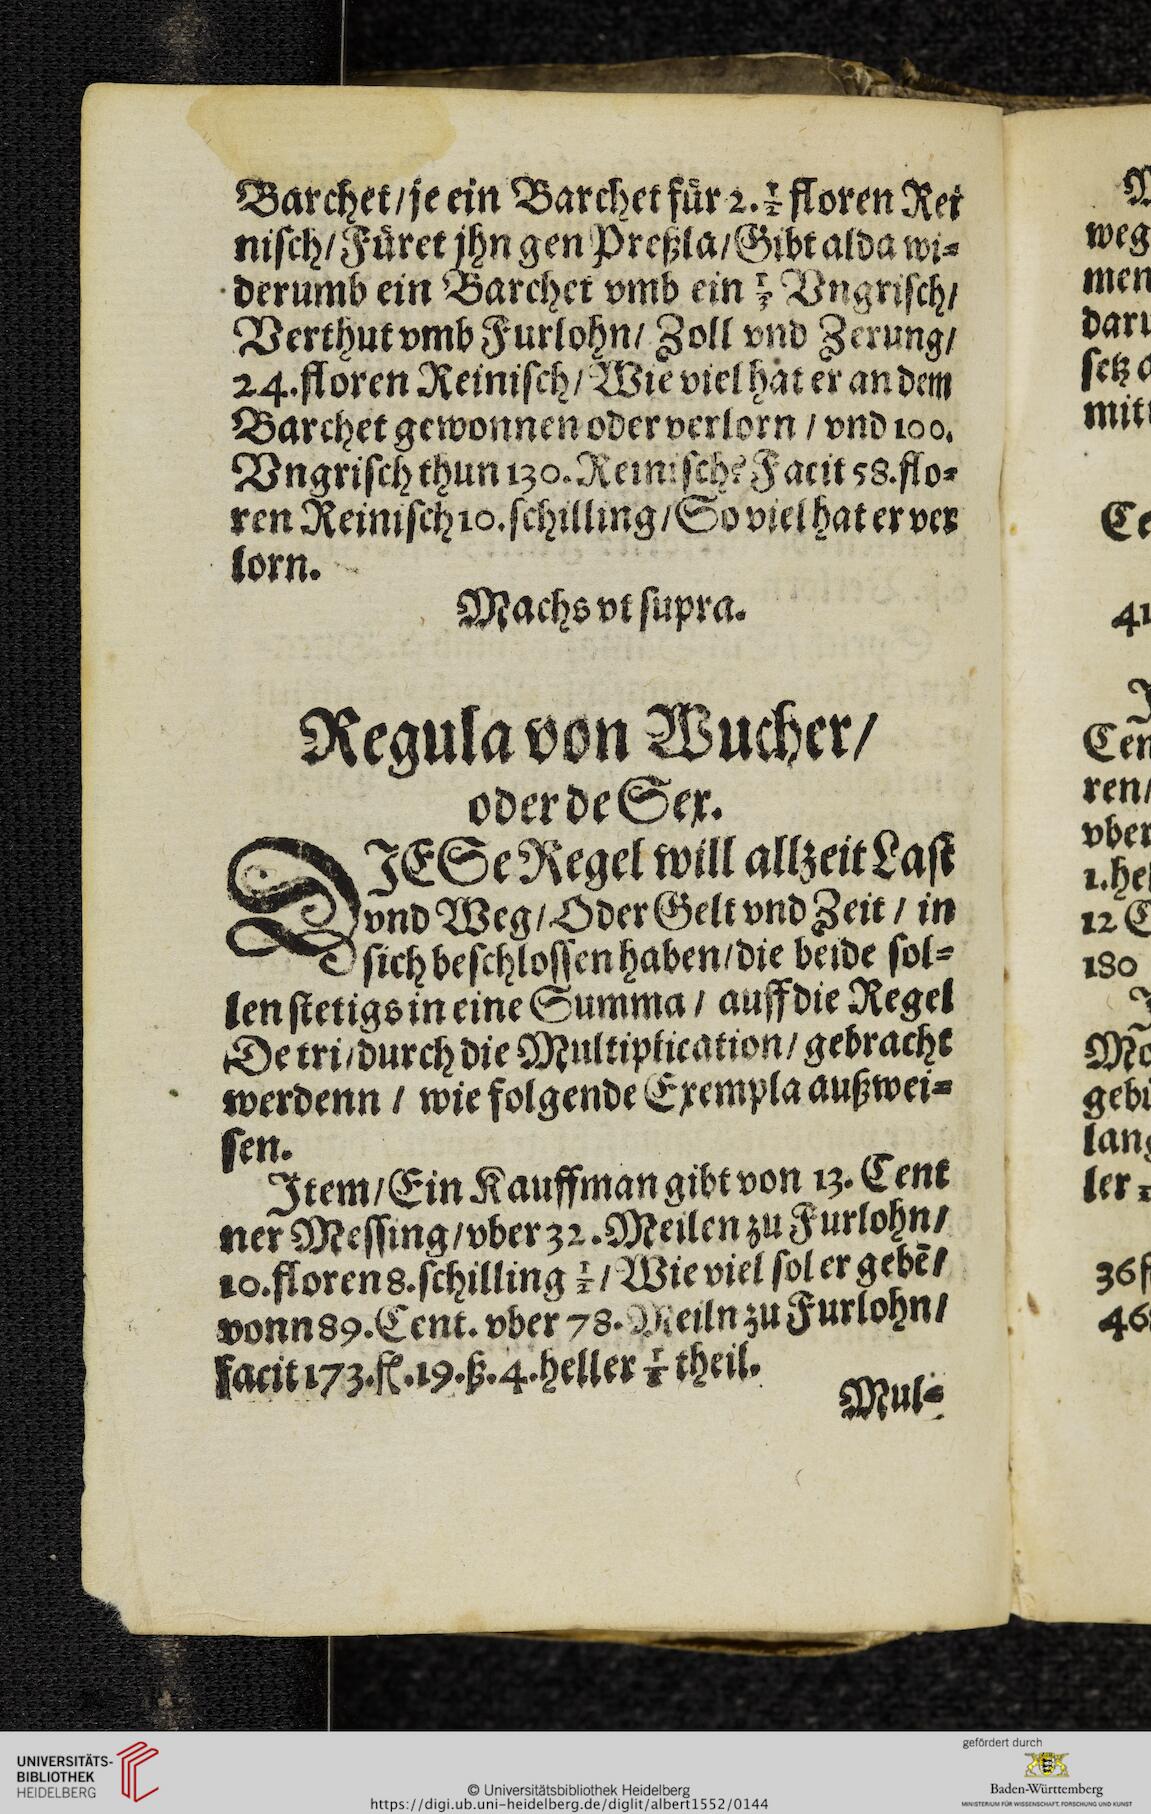 Barchet/je ein Barchet für 2.½ floren Rei
nisch/Füret jhn gen Preßla/Gibt alda wi⸗
derumb ein Barchet vmb ein ⅓ Vngrisch/
Verthut vmb Furlohn/ Zoll vnd Zerung/
24.floren Reinisch/Wie viel hat er an dem
Barchet gewonnen oder verlorn / vnd 100.
Vngrisch thun 130.Reinisch? Facit 58.flo⸗
ren Reinisch 10.schilling/So viel hat er ver
lorn.
Machs vt supra.
Regula von Wucher/
oder de Sex.
DIESe Regel will allzeit Last
vnd Weg/Oder Gelt vnd Zeit / in
sich beschlossen haben/die beide sol⸗
len stetigs in eine Summa / auff die Regel
De tri/durch die Multiplication/gebracht
werdenn / wie folgende Exempla außwei⸗
sen.
Item/Ein Kauffman gibt von 13. Cent
ner Messing/vber 32.Meilen zu Furlohn/
10.floren 8.schilling ½/Wie viel sol er gebē/
vonn 89.Cent. vber 78.Meiln zu Furlohn/
facit 173.fl.19.ß.4.heller theil.
Mul⸗
weg
men
daru
mit
41
Cen
ren/
vber
1.hel
12 C
180
gebü
lang
ler
36 f
46
UNIVERSITÄTS-
BIBLIOTHEK
HEIDELBERG
© Universitätsbibliothek Heidelberg
https://digi.ub.uni-heidelberg.de/diglit/albert1552/0144
gefördert durch
Baden-Württemberg
MINISTERIUM FÜR WISSENSCHAFT, FORSCHUNG UND KUNST